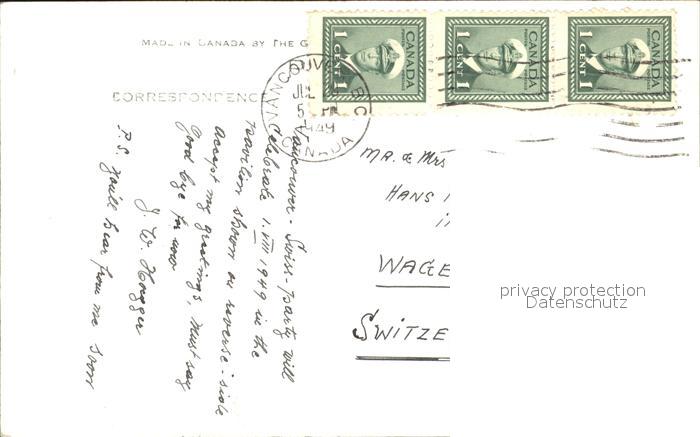 MADE IN CANADA BY THE G
CORRESPONDENCE
CANADA
1 CENT 1
CANADA
1 CENT 1
CANADA
1 CENT 1
VANCOUVER B.C.
JUL
5
1949
CANADA
Vancouver - Swiss-party will
Celebrate 1. VIII 1949 in the
Pavilion shown on reverse-side
accept my greetings, must say
Good bye for now
J. W. Hoegger
P.S. You'll hear from me soon
MR. & MRS
HANS
WAGE
SWITZE
privacy protection
Datenschutz